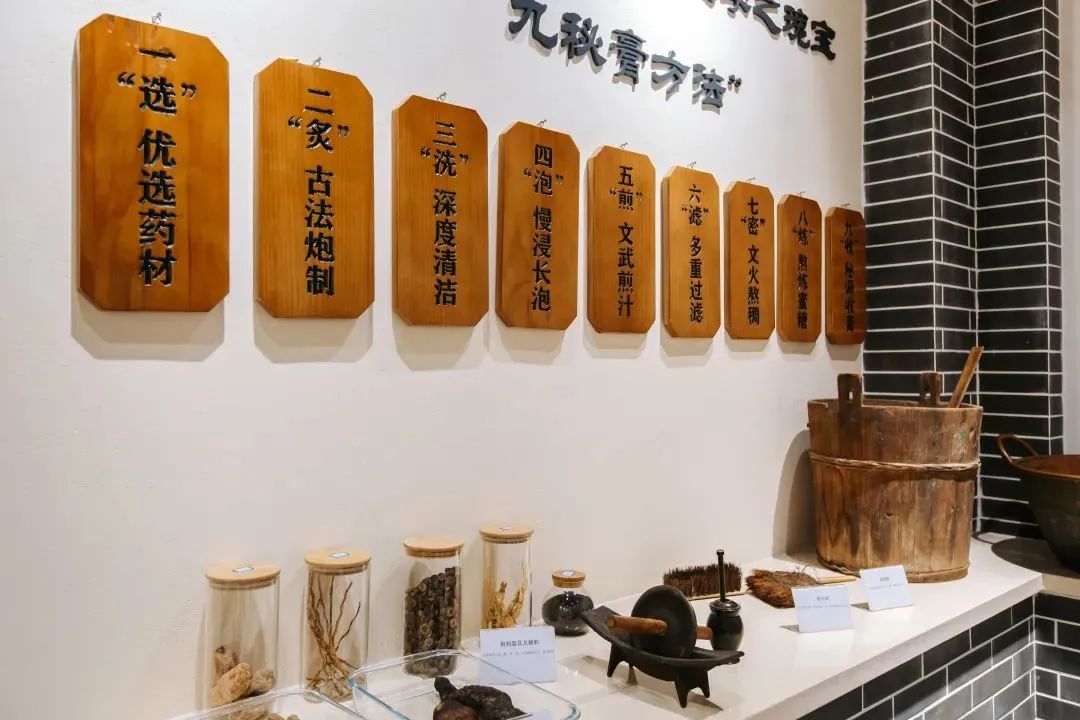 之瑰宝
九秘膏方法”
一“选” 优选药材
二“炙” 古法炮制
三“洗” 深度清洁
四“泡” 慢浸长泡
五“煎” 文武煎汁
六“滤” 多重过滤
七“密” 文火熬稠
八“炼” 熬炼蜜糖
九“收” 收膏
炮制器具及辅料